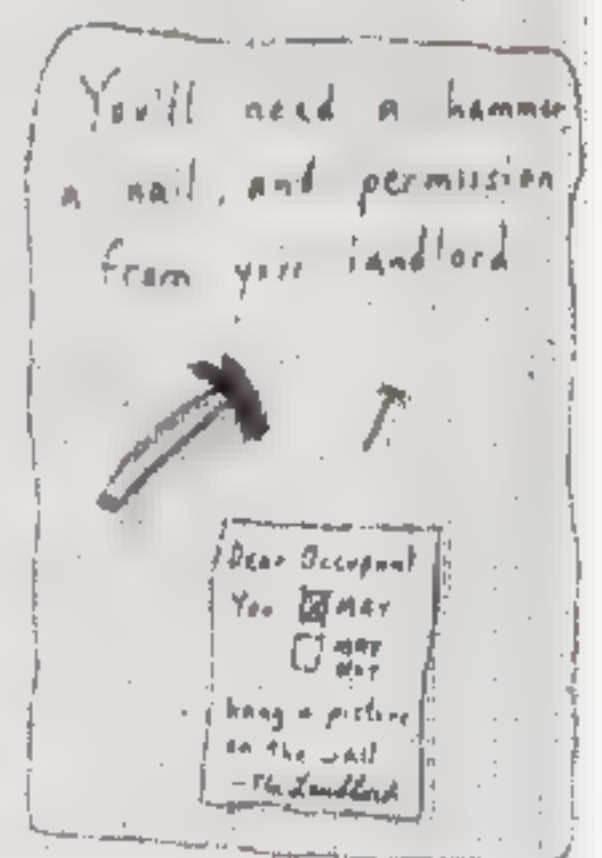 You'll need a hammer
a nail, and permission
from your landlord
Dear Occupant
You ☒ MAY
☐ MAY
NOT
hang a picture
on the wall
- The Landlord